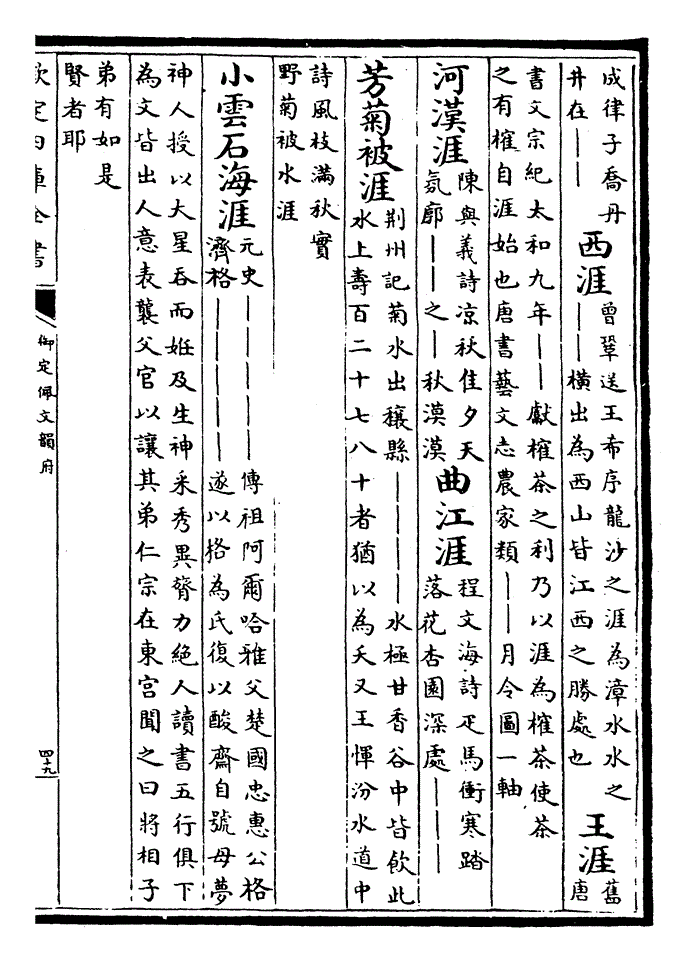 成律子喬丹
井在——
西涯
曾鞏送王希序龍沙之涯為漳水水之
——橫出為西山皆江西之勝處也
王涯
舊
唐
書文宗紀太和九年——獻榷茶之利乃以涯為榷茶使茶
之有榷自涯始也唐書藝文志農家類——月令圖一軸
河漢涯
陳與義詩凉秋佳夕天
氛廓——之—秋漠漠
曲江涯
程文海詩疋馬衝寒踏
落花杏園深處———
芳菊被涯
荆州記菊水出穰縣————水極甘香谷中皆飲此
水上壽百二十七八十者猶以為夭又王惲汾水道中
詩風枝滿秋實
野菊被水涯
小雲石海涯
元史—————傳祖阿爾哈雅父楚國忠惠公格
濟格—————遂以格為氏復以酸齋自號母夢
神人授以大星吞而姙及生神采秀異膂力絕人讀書五行俱下
為文皆出人意表襲父官以讓其弟仁宗在東宫聞之曰將相子
弟有如是
賢者耶
欽定四庫全書
御定佩文韻府
四十九